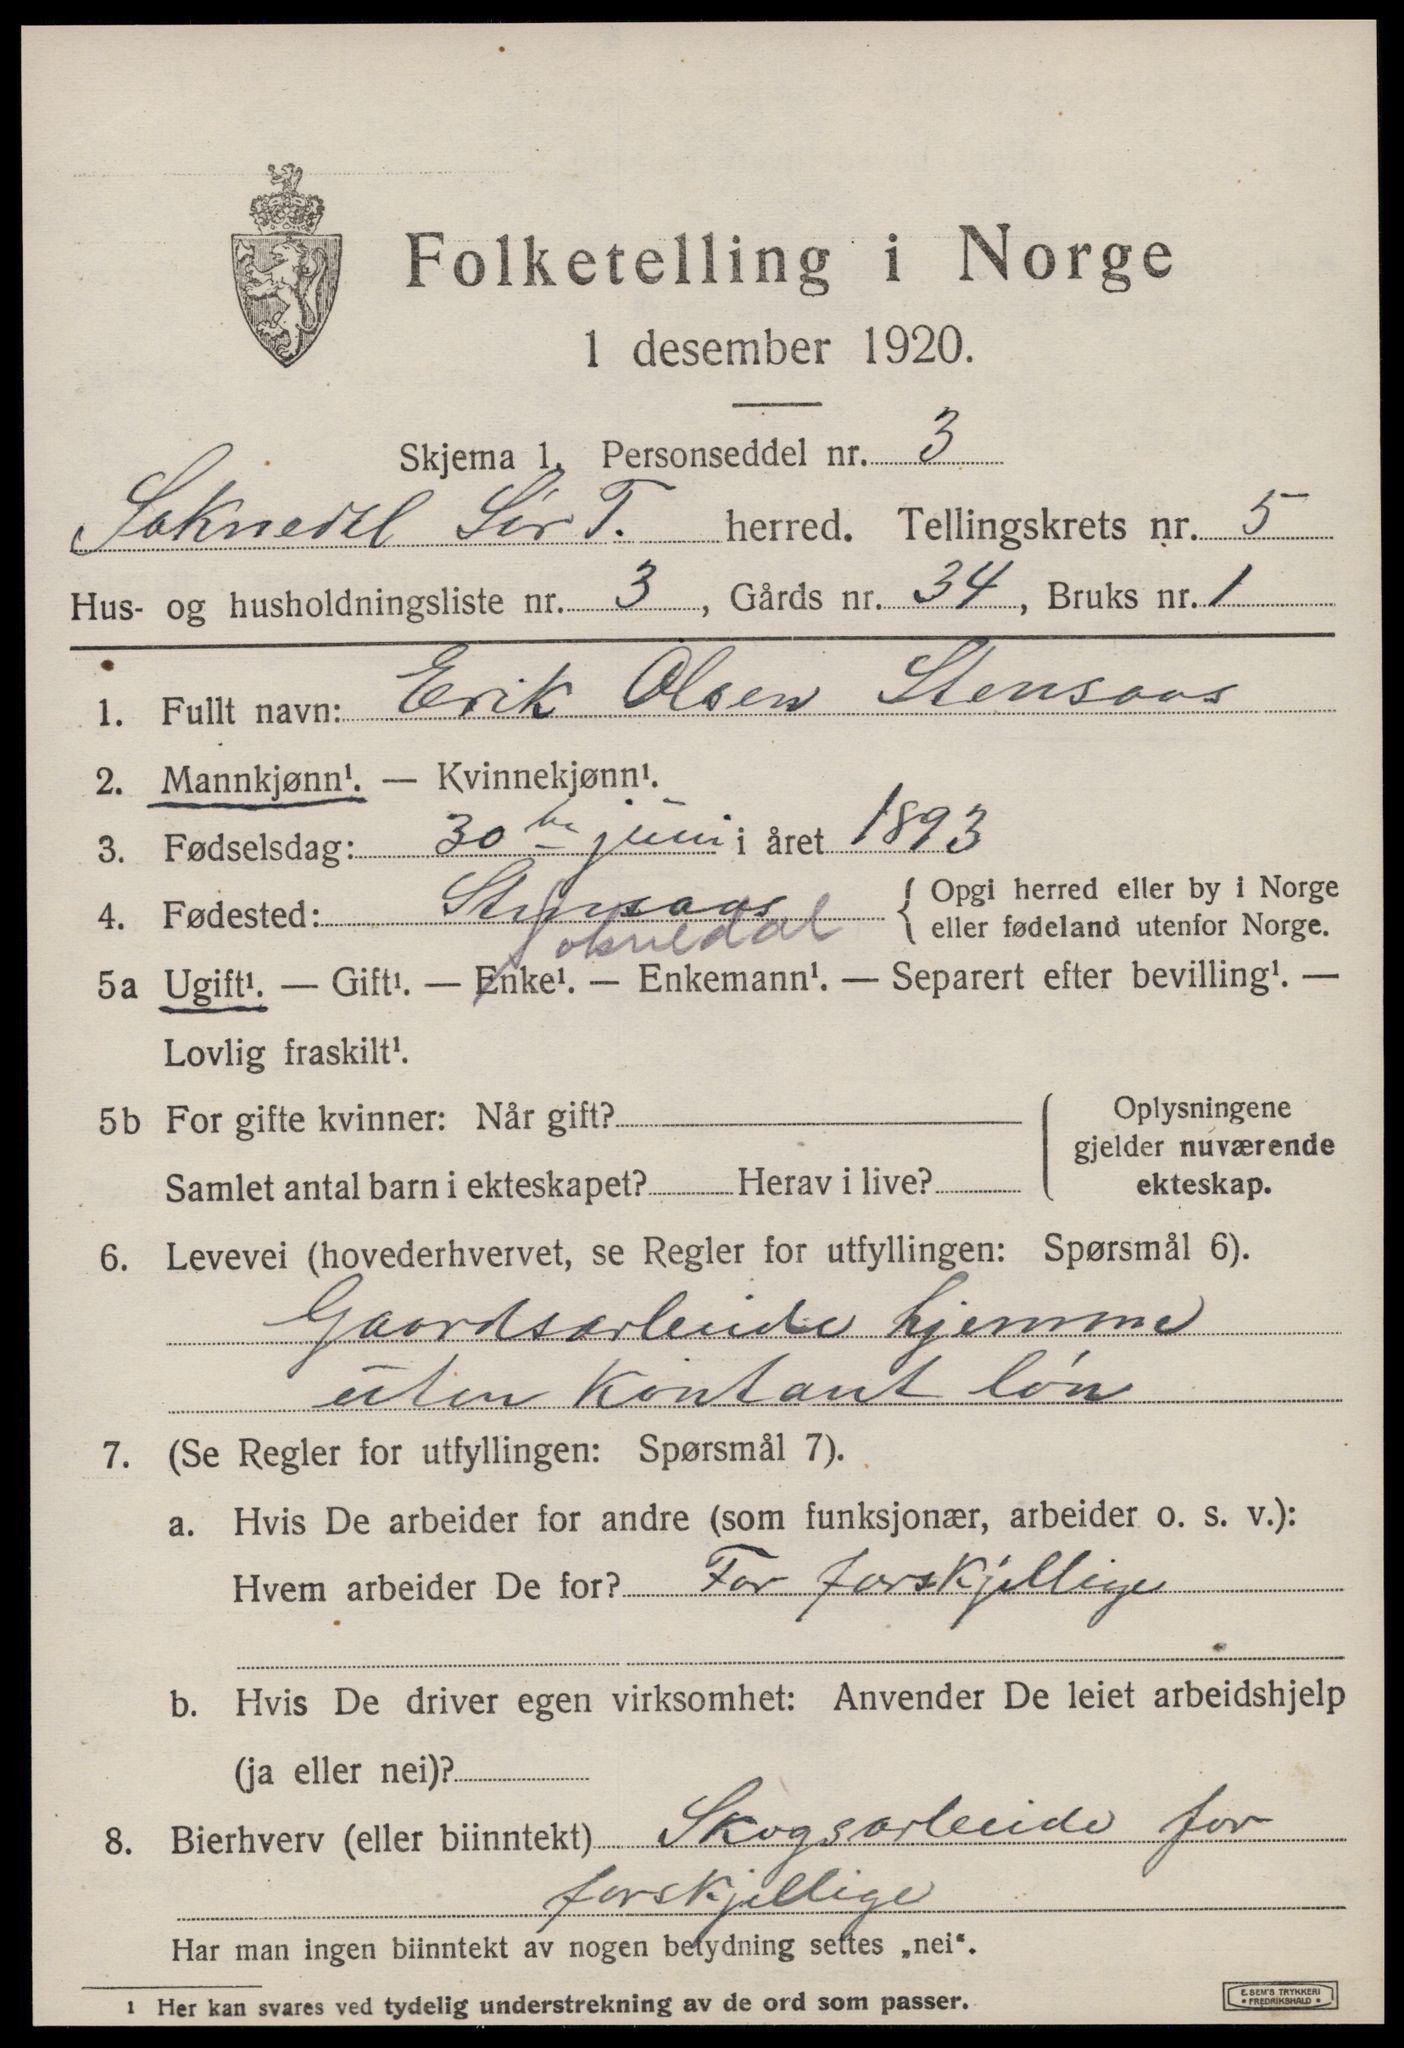 Folketelling i Norge
1 desember 1920.
Skjema 1. Personseddel nr. 3
Soknedal Sør T. herred. Tellingskrets nr. 5
Hus- og husholdningsliste nr. 3, Gårds nr. 34, Bruks nr. 1
1. Fullt navn: Erik Olsen Stensaas
2. Mannkjønn¹. — Kvinnekjønn¹.
3. Fødselsdag: 30te juni i året 1893
4. Fødested: Stensaas { Opgi herred eller by i Norge
eller fødeland utenfor Norge.
Soknedal
5a Ugift¹. — Gift¹. — Enke¹. — Enkemann¹. — Separert efter bevilling¹. —
Lovlig fraskilt¹.
5b For gifte kvinner: Når gift? ( Oplysningene
gjelder nuværende
Samlet antal barn i ekteskapet? Herav i live? ekteskap.
6. Levevei (hovederhvervet, se Regler for utfyllingen: Spørsmål 6).
Gaardsarbeide hjemme
uten kontant løn
7. (Se Regler for utfyllingen: Spørsmål 7).
a. Hvis De arbeider for andre (som funksjonær, arbeider o. s. v.):
Hvem arbeider De for? For forskjellige
b. Hvis De driver egen virksomhet: Anvender De leiet arbeidshjelp
(ja eller nei)?
8. Bierhverv (eller biinntekt) Skogsarbeide for
forskjellige
Har man ingen biinntekt av nogen betydning settes „nei“.
1 Her kan svares ved tydelig understrekning av de ord som passer.
E. SEM'S TRYKKERI
• FREDRIKSHALD •